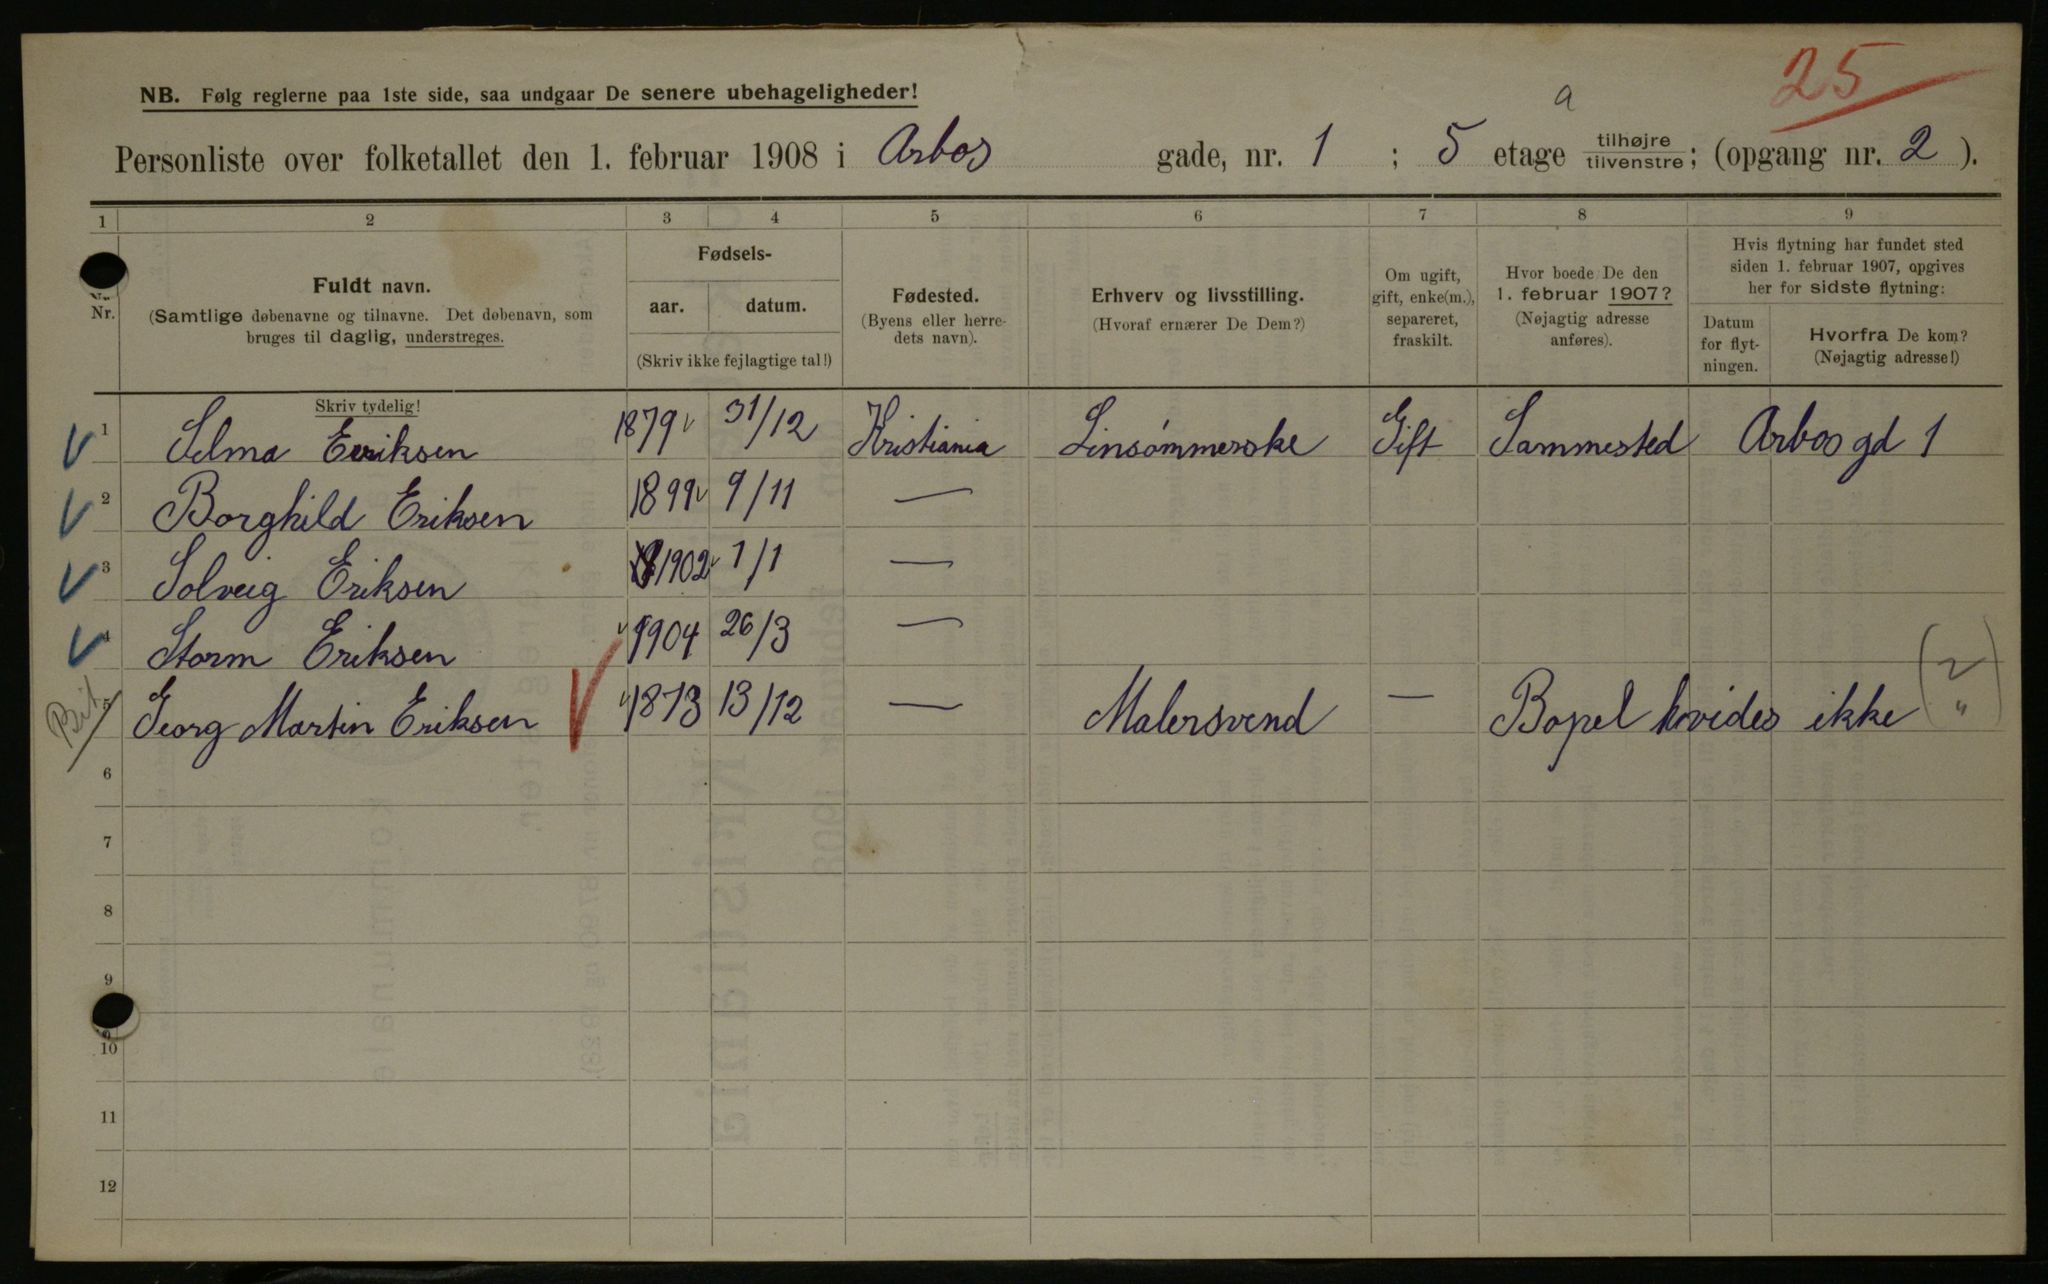 25
NB. Følg reglerne paa 1ste side, saa undgaar De senere ubehageligheder!
a
Personliste over folketallet den 1. februar 1908 i Arbos gade, nr. 1 ; 5 etage tilhøjre tilvenstre; (opgang nr. 2 ).
1 2 3 4 5 6 7 8 9
Nr.
Fuldt navn.
(Samtlige døbenavne og tilnavne. Det døbenavn, som
bruges til daglig, understreges.
Skriv tydelig!
Fødsels-
aar. datum.
(Skriv ikke fejlagtige tal!)
Fødested.
(Byens eller herre-
dets navn).
Erhverv og livsstilling.
(Hvoraf ernærer De Dem?)
Om ugift,
gift, enke(m.),
separeret,
fraskilt.
Hvor boede De den
1. februar 1907?
(Nøjagtig adresse
anføres).
Hvis flytning har fundet sted
siden 1. februar 1907, opgives
her for sidste flytning:
Datum
for flyt-
ningen.
Hvorfra De kom?
(Nøjagtig adresse!)
1 Selma Eriksen 1879 31/12 Kristiania Linsømmerske Gift Sammested Arbos gd 1
2 Borghild Eriksen 1899 9/11 —
3 Solveig Eriksen 1902 1/1 —
4 Storm Eriksen 1904 26/3 —
5 Georg Martin Eriksen 1873 13/12 — Malersvend — Bopel hvides ikke
6
7
8
9
10
11
12